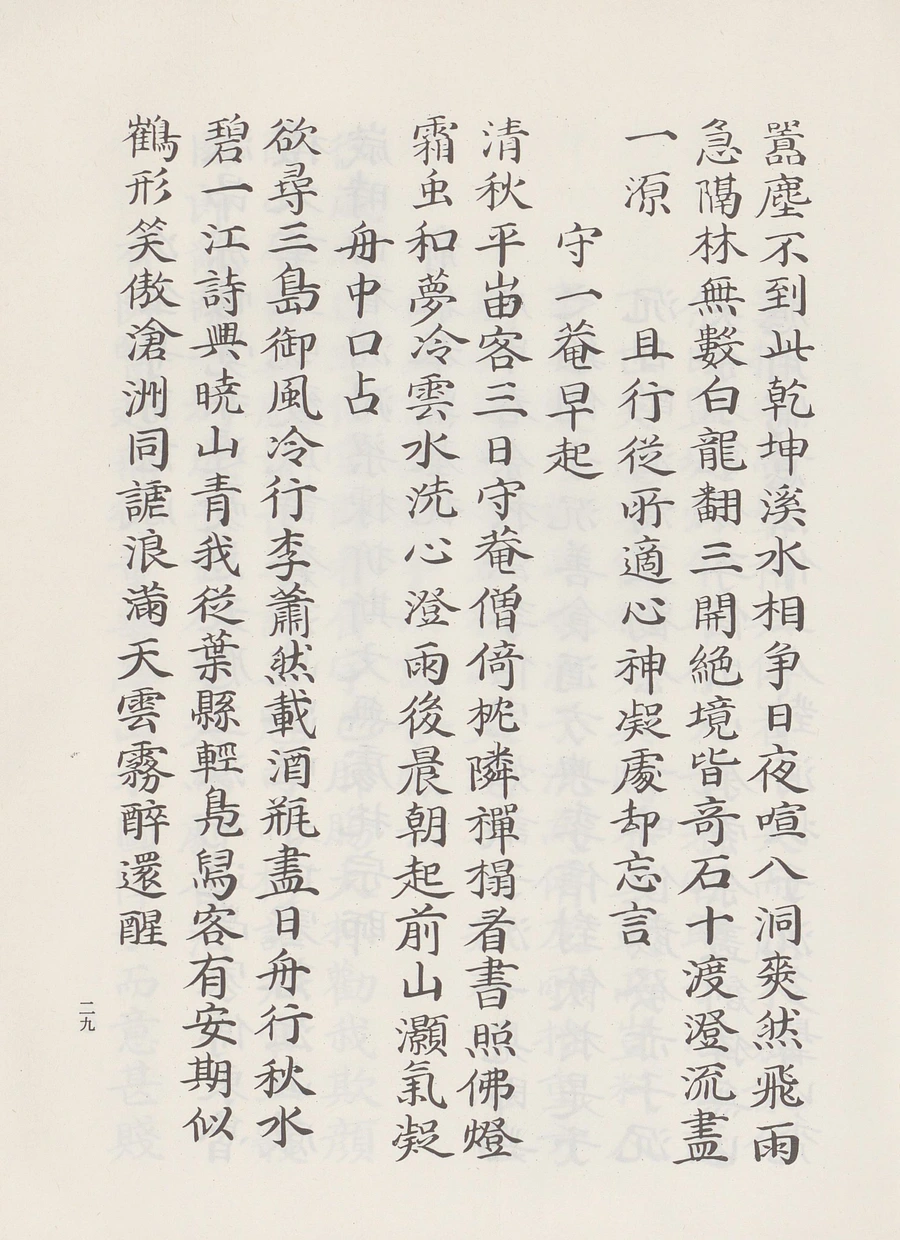 囂塵不到此乾坤溪水相争日夜喧八洞爽然飛雨
急隔林無數白龍翻三開絶境皆竒石十渡澄流盡
一源　且行從所適心神凝處却忘言
守一菴早起
清秋平畄客三日守菴僧倚枕隣禪榻看書照佛燈
霜虫和夢冷雲水洗心澄雨後晨朝起前山灝氣凝
舟中口占
欲尋三島御風冷行李蕭然載酒瓶盡日舟行秋水
碧一江詩興曉山青我從葉縣輕鳬舄客有安期似
鶴形笑傲滄洲同謔浪滿天雲霧醉還醒
二九